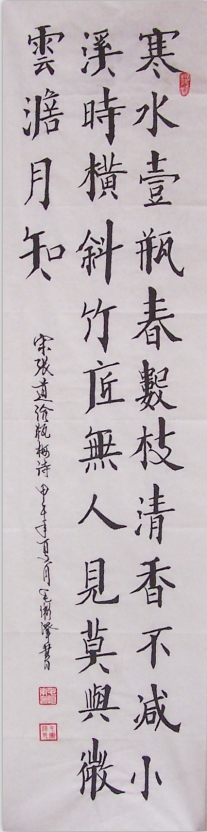 寒水壹瓶春數枝清香不减小
溪時橫斜竹底無人見莫與微
雲澹月知
宋張道洽瓶梅詩甲午年夏月